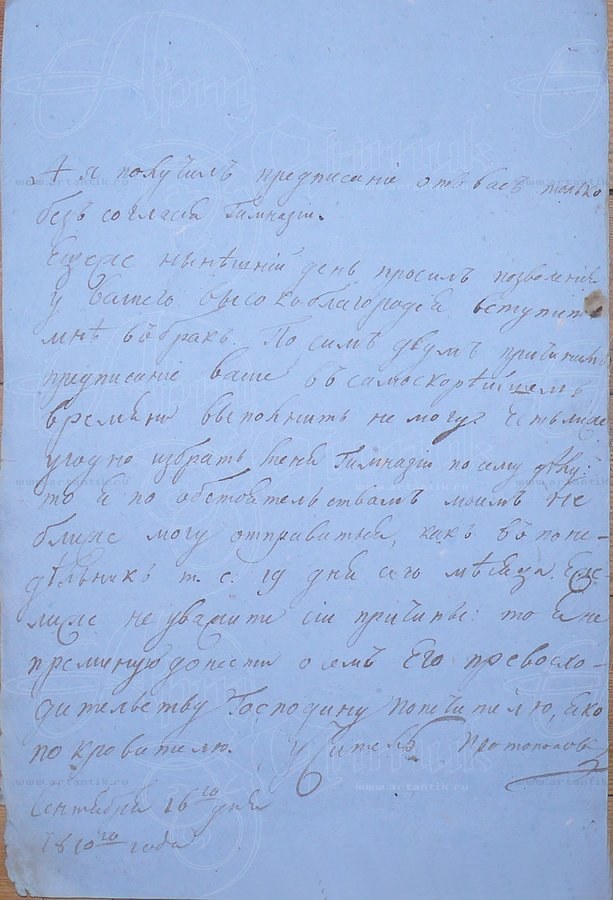 А я получилъ предписаніе отъ васъ только
безъ согласія Гимназіи.
Ещеже нынѣшній день просилъ позволенія
у вашего высокоблагородія вступить
мнѣ въ бракъ. По симъ двумъ причинамъ
предписаніе ваше въ самоскорѣйшемъ
времени выполнить не могу. Естьлиже
угодно избрать меня Гимназіи по сему дѣлу:
то я по обстоятельствамъ моимъ не
ближе могу отправиться, какъ въ поне-
дѣльникъ т. е. 19 дня сего мѣсяца. Еже-
лиже не уважите сіи причины: то я не
премину донести о семъ Его превосхо-
дительству Господину Попечителю, яко
покровителю. Учитель Протопоповъ
Сентября 16го дня
1810го года
Арт Антик
www.artantik.ru